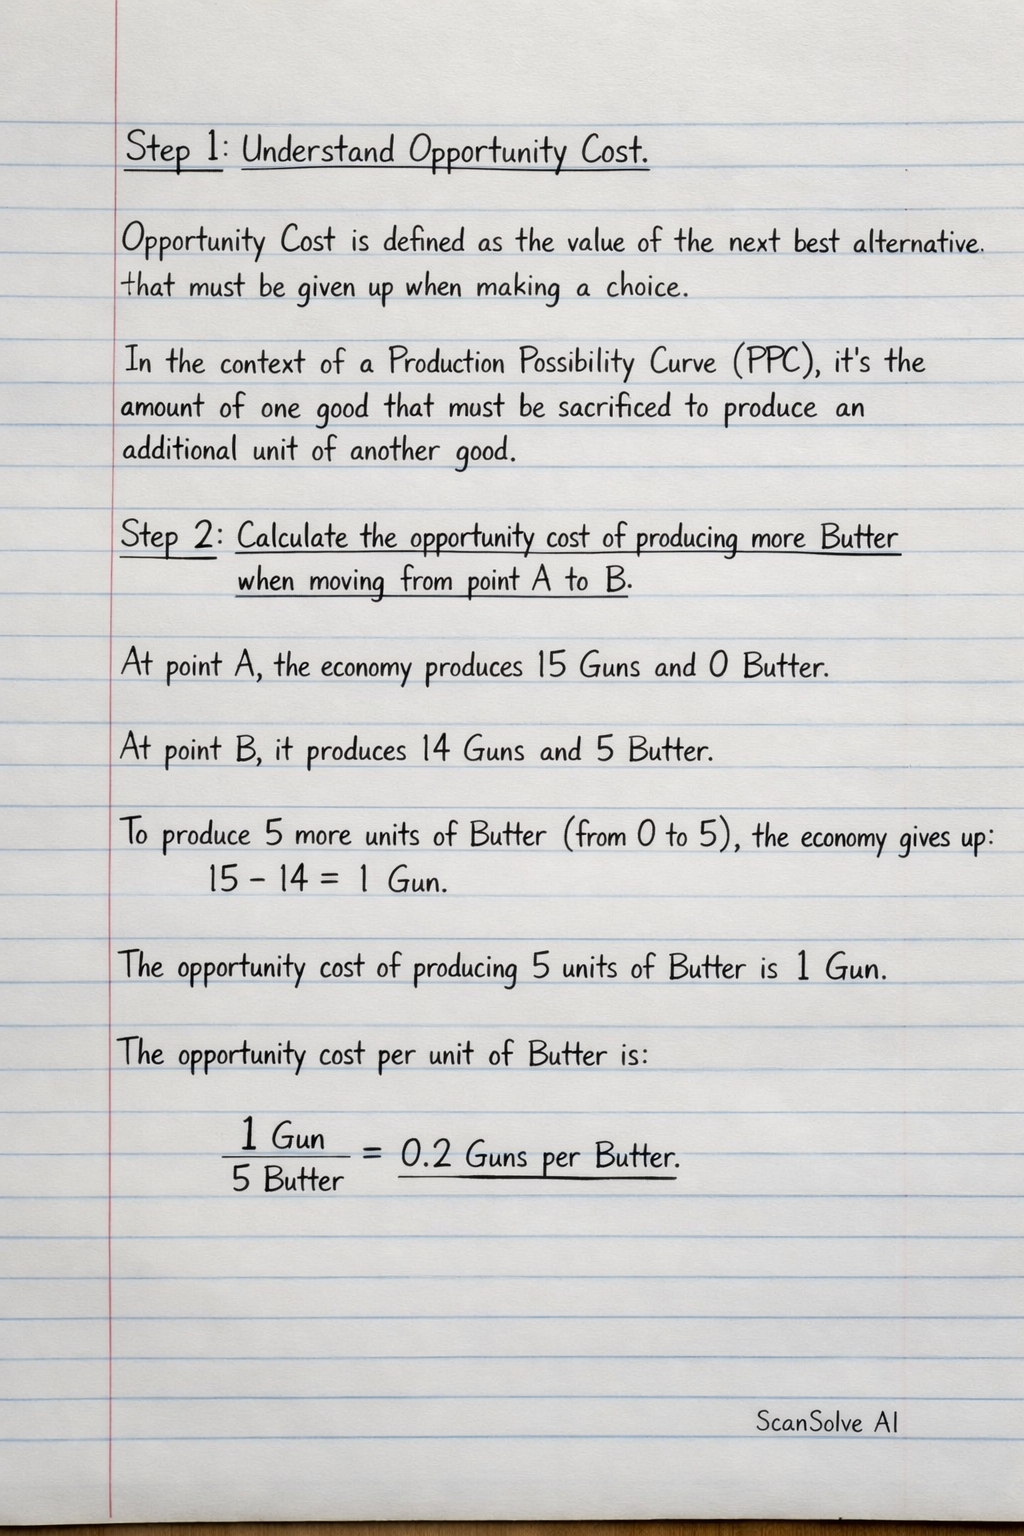 Step 1: Understand Opportunity Cost.
Opportunity Cost is defined as the value of the next best alternative.
that must be given up when making a choice.
In the context of a Production Possibility Curve (PPC), it's the
amount of one good that must be sacrificed to produce an
additional unit of another good.
Step 2: Calculate the opportunity cost of producing more Butter
when moving from point A to B.
At point A, the economy produces 15 Guns and 0 Butter.
At point B, it produces 14 Guns and 5 Butter.
To produce 5 more units of Butter (from 0 to 5), the economy gives up:
15 - 14 = 1 Gun.
The opportunity cost of producing 5 units of Butter is 1 Gun.
The opportunity cost per unit of Butter is:
1 Gun
5 Butter = 0.2 Guns per Butter.
ScanSolve AI